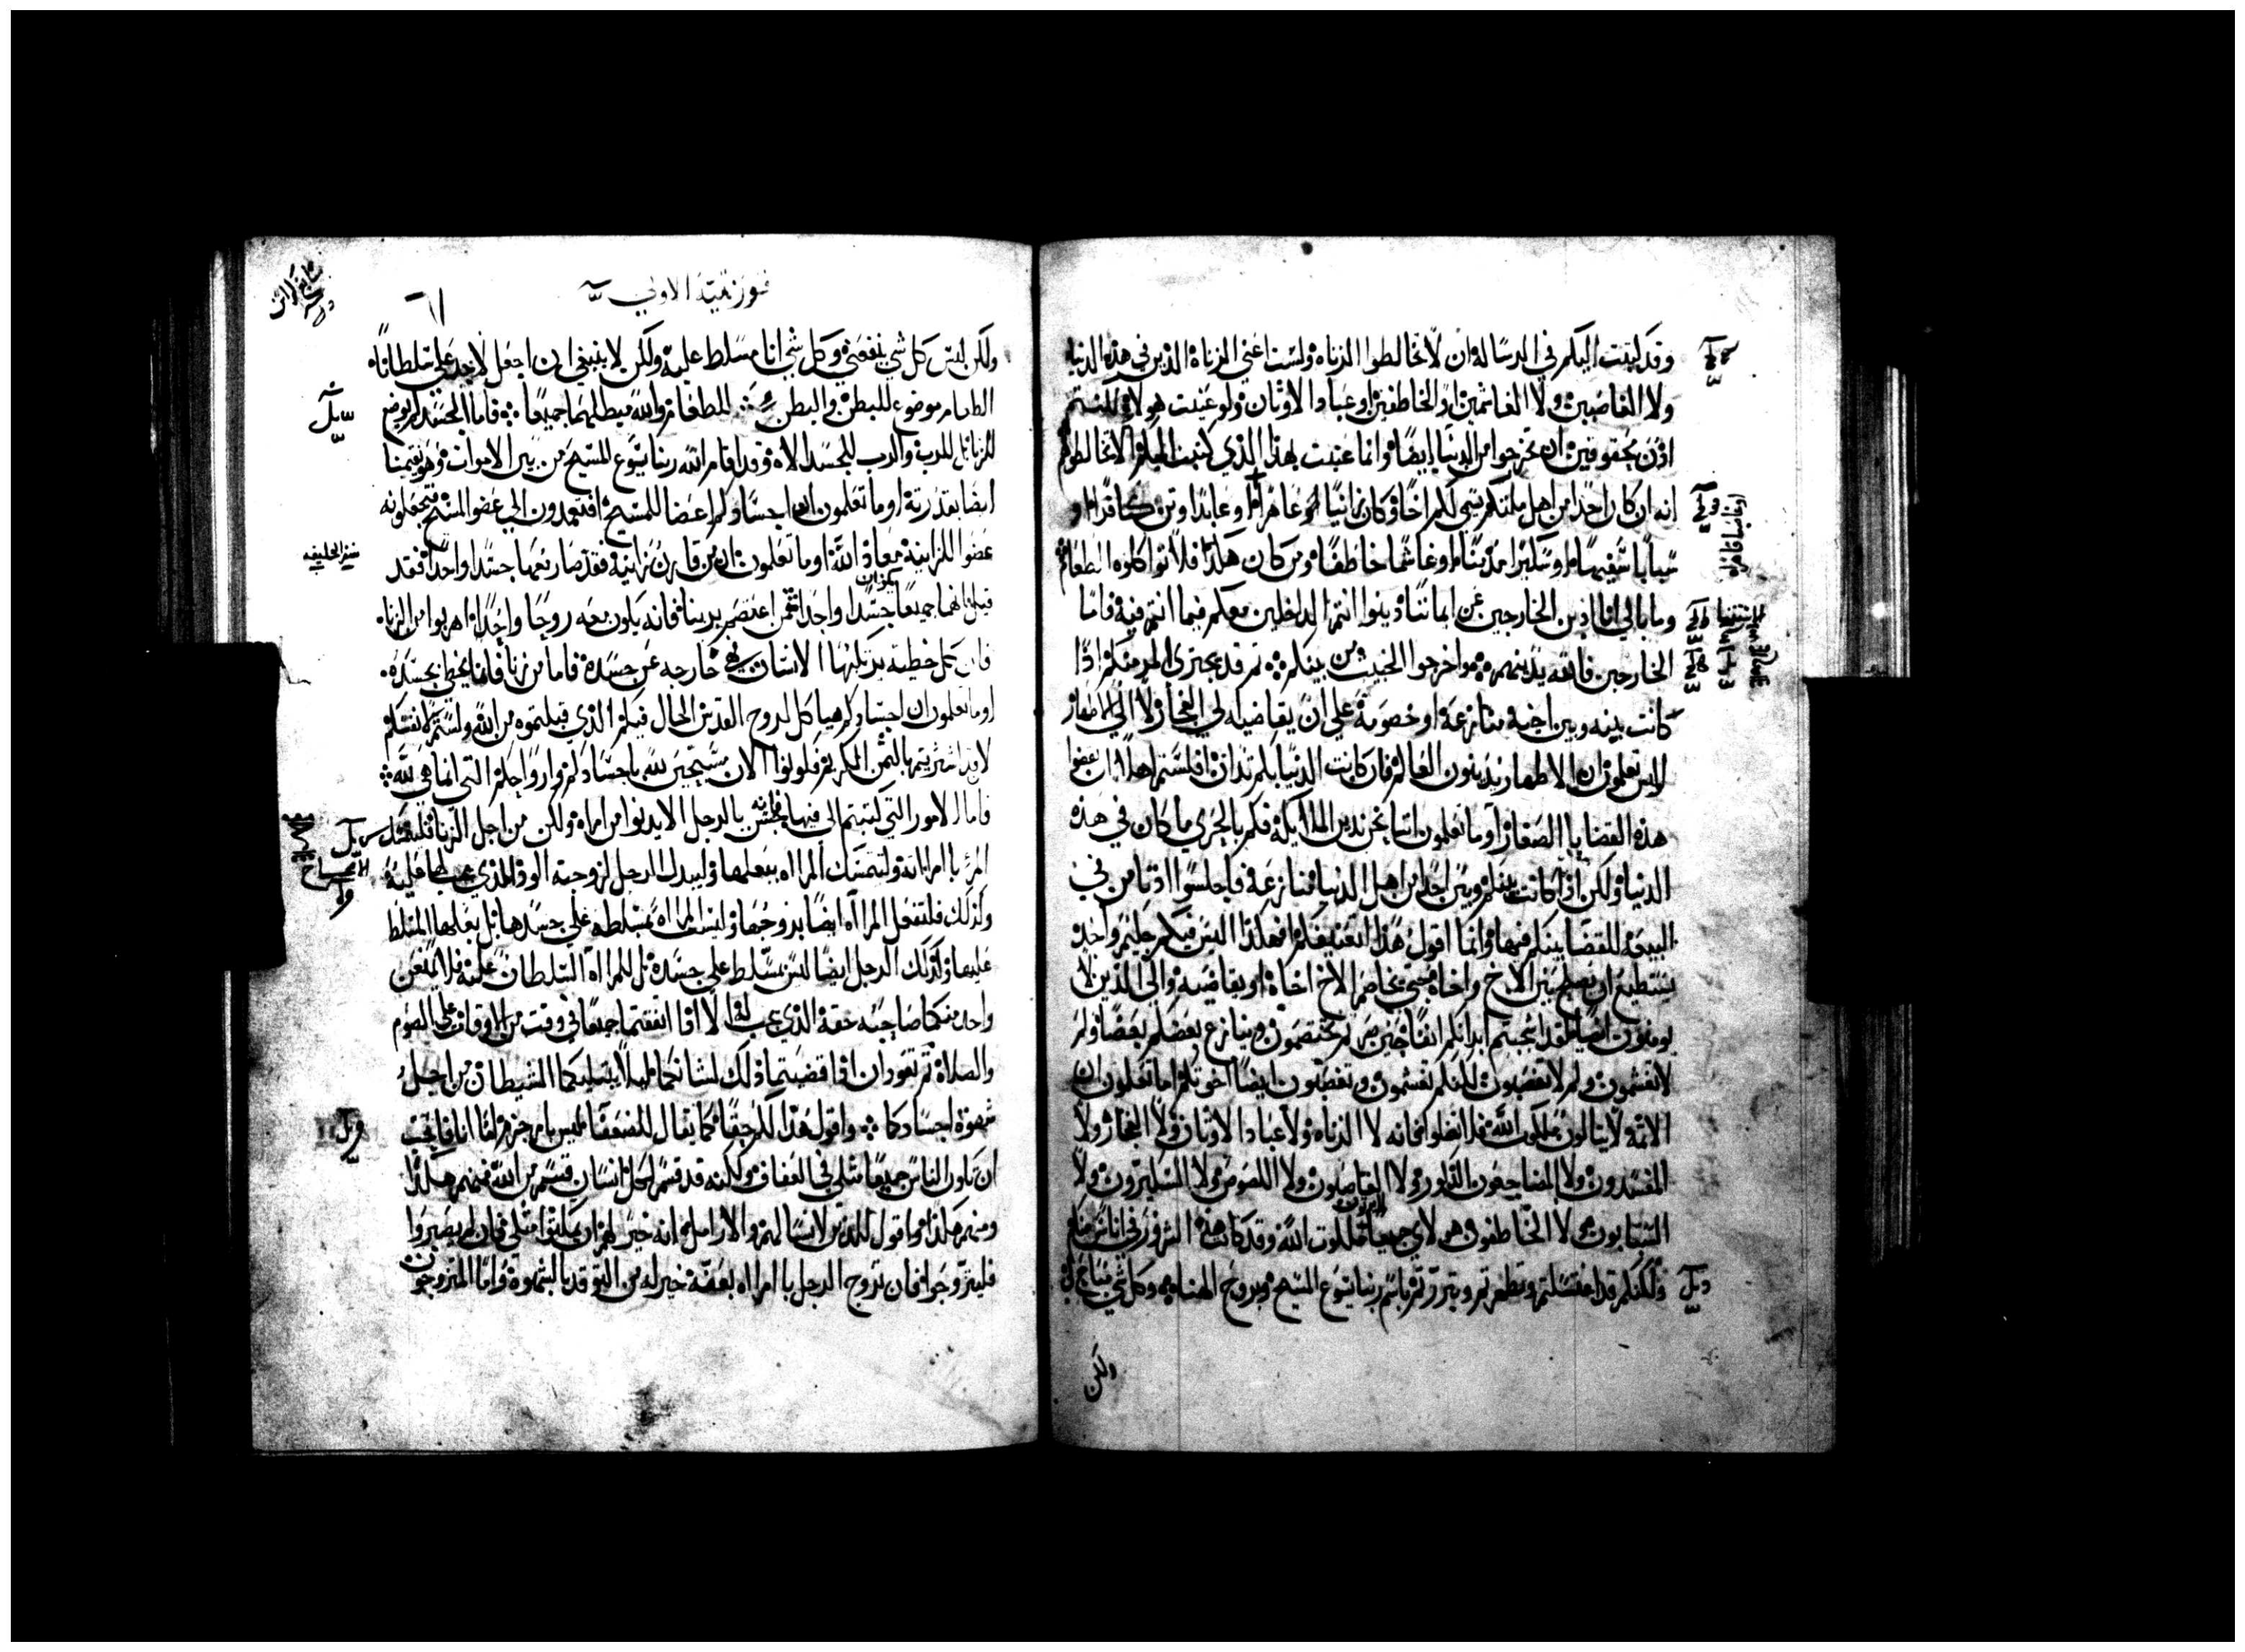 وقد كتبت اليكم في الرساله ان لا تخالطوا الزناه ولست اعني الزناة الذين في هذه الدنيا
ولا الغاصبين ولا الغاشمين او الخاطفين او عباد الاوثان ولو عنيت هولاي لكنتم
اذن تحقوقين ان تخرجوا من الدنيا ايضا وانما عنيت بهذا الذي كتبت اليكم الا تخالطوهم
انه ان كان احدا من اهل ملتكم يسمي لكم اخا وكان زانيا او عاهرا او عابدا وثن كافرا او
سبابا سفيها او سكيرا مدمنا او غاشما خاطفا ومن كان هكذا فلا تواكلوه الطعام
وما بالي انا ادين الخارجين عن ايماننا دينوا انتم الداخلين معكم فيما انتم فيه فاما
الخارجين فالله يدينهم واخرجوا الخبيث من بينكم ثم قد يجتري المر منكم اذا
كانت بينه وبين اخيه منازعة او خصومة علي ان يقاضيه الي الفجار لا الي الاطهار
الستم تعلمون ان الاطهار يدينون العالم فان كانت الدنيا بكم تدان افلستم اهلا ان تقضوا
هذه القضايا الصغار او ما تعلمون اننا نحن ندين الملايكة فكم بالحري ما كان في هذه
الدنيا ولكن اذا كانت بينكم وبين احد من اهل الدنيا منازعة فاجلسوا ادنا من في
البيعة للقضا بينكم فيها وانما اقول هذا لتعنيفكم افهكذا اليس فيكم حكيم واحد
يستطيع ان يصلح بين الاخ واخاه حتي يخاصم الاخ اخاة او يقاضيه والي الذين لا
يومنون ايضا لقد اشجبتم ابدانكم انفا حين صرتم تختصمون وينازع بعضكم بعضا ولم
لا تغشمون ولم لا تغصبون لكنكم تغشمون وتغصبون ايضا اخوتكم اما تعلمون ان
الاثمه لا ينالون ملكوت الله فلا تضلوا فانه لا الزناه ولا عباد الاوثان ولا الفجار ولا
المفسدون ولا المضاجعون الذكور ولا الغاصبون ولا اللصوص ولا السكيرون ولا
السبابون ولا الخاطفون هولاي جميعا يرثون ملكوت الله وقد كانت هذه الشرور في اناس منكم
ولكنكم قد اغتسلتم وتطهرتم وتبررتم باسم ربنا يسوع المسيح وبروح الهنا وكل شي مباح لي
ولكن
فورنتيه الاولي
٦١
ولكن ليس كل شي ينفعني وكل شي انا مسلط عليه ولكن لا ينبغي ان اجعل لاحد علي سلطانا
الطعام موضوع للبطن والبطن للطعام والله يبطلهما جميعا فاما الجسد لم يوضع
للزنا بل للرب والرب للجسد الاه وقد اقام الله ربنا يسوع المسيح من بين الاموات وهو يقيمنا
ايضا بقدرته اوما تعلمون ان اجسادكم اعضا للمسيح افتعمدون الي عضو المسيح فتجعلونه
عضوا للزانية معاذ الله اوما تعلمون ان من قارن زانية فقد صار معها جسدا واحدا فقد
قيل انهما جميعا يكونان جسدا واحدا فمن اعتصم بربنا فانه يكون معه روحا واحدا اهربوا من الزنا
فان كل خطية يرتكبها الانسان فهي خارجه عن جسدة فاما من زنا فانما يخطي بجسده
اوما تعلمون ان اجسادكم هياكل لروح القدس الحال فيكم الذي قبلتموه من الله ولستم لانفسكم
لانه قد اشتريتم بالثمن الكريم فكونوا الان مسبحين لله باجسادكم وارواحكم التي انما هي لله
فاما الامور التي كتبتم الي فيها فحسن بالرجل الا يدنوا من امراه ولكن من اجل الزنا فليتمسك
المر بامراته ولتتمسك المراه ببعلها وليبدل الرجل لزوجته الود الذي يجب لها عليه
وكذلك فلتفعل المراه ايضا بزوجها وليست المراه مسلطه علي جسدها بل بعلها المسلط
عليها وكذلك الرجل ايضا ليس مسلط علي جسدة بل للمراة السلطان عليه فلا يمنعن
واحد منكما صاحبه حقة الذي يجب له الا اذا اتفقتما جميعا في وقت من الاوقات علي الصوم
والصلاة ثم تعودان اذا قضيتما ذلك لشانكما ليلا يبتليكما الشيطان من اجل
شهوة اجسادكما واقول هذا لكم حقا كما يقال للضعفا ليس بامر جزم اما انا فاحب
ان يكون الناس جميعا مثلي في العفاف ولكنه قد قسم لكل انسان قسم من الله فمنهم هكذا
ومنهم هكذا واقول للذين لا نسا لهم والارامل انه خير لهم ان يكونوا مثلي فان لم يصبروا
فليتزوجوا فان تزوج الرجل بامراه بعفة خير له من التوقد بالشهوة واما المتزوجون